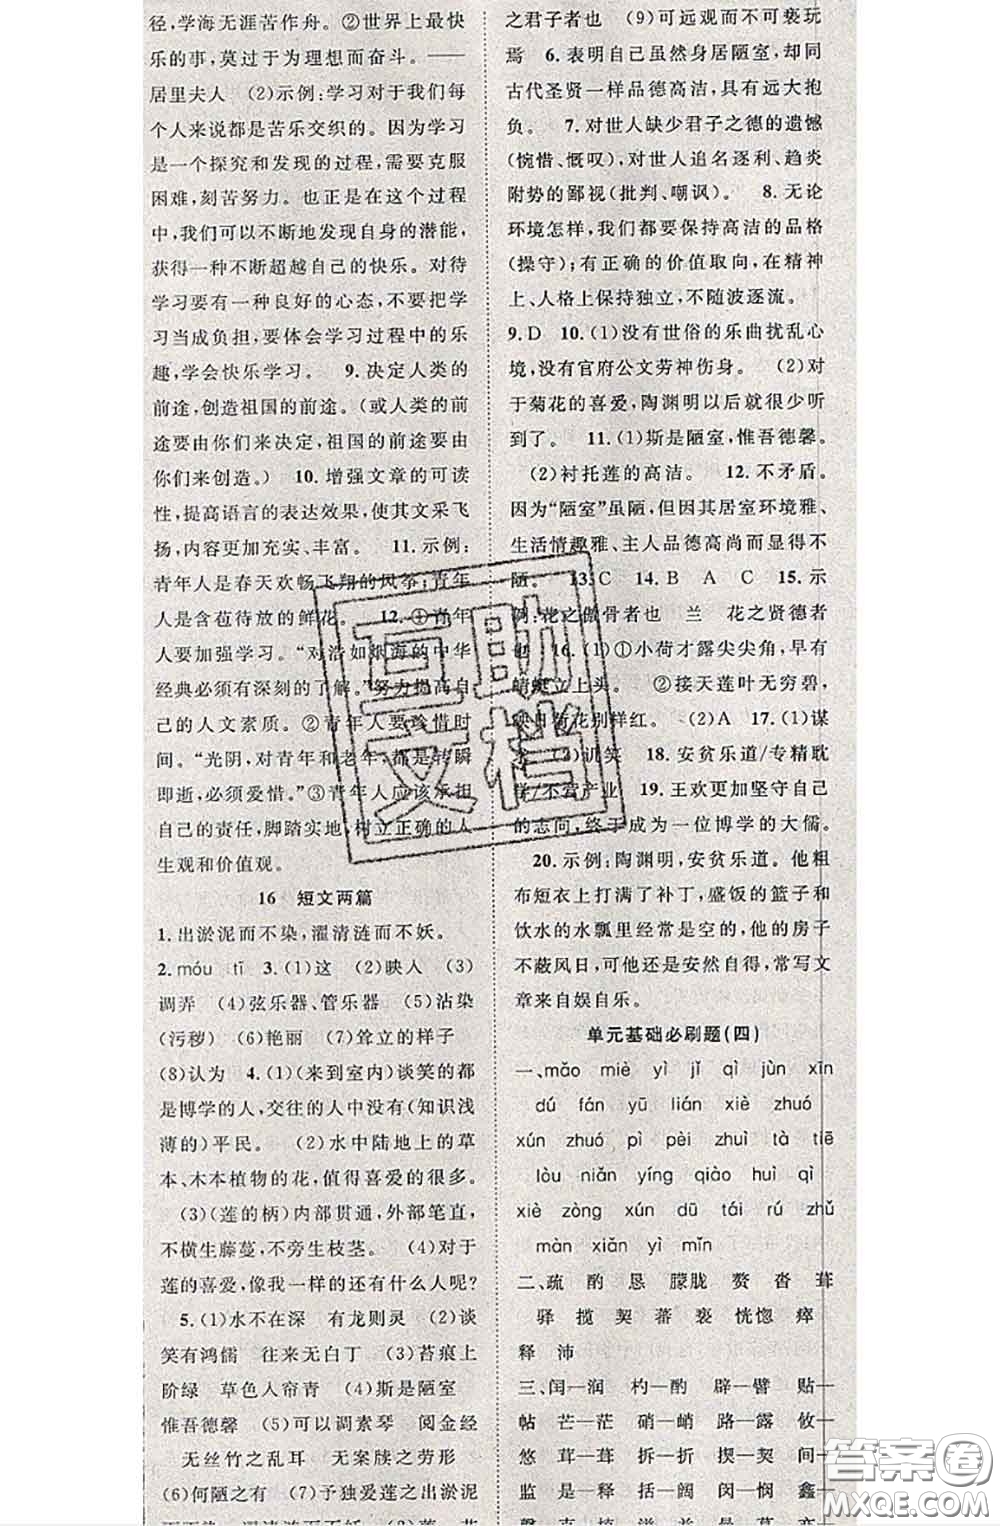 径,学海无涯苦作舟。②世界上最快
乐的事,莫过于为理想而奋斗。——
居里夫人 (2)示例:学习对于我们每
个人来说都是苦乐交织的。因为学习
是一个探究和发现的过程,需要克服
困难,刻苦努力。也正是在这个过程
中,我们可以不断地发现自身的潜能,
获得一种不断超越自己的快乐。对待
学习要有一种良好的心态,不要把学
习当成负担,要体会学习过程中的乐
趣,学会快乐学习。 9.决定人类的
前途,创造祖国的前途。(或人类的前
途要由你们来决定,祖国的前途要由
你们来创造。) 10.增强文章的可读
性,提高语言的表达效果,使其文采飞
扬,内容更加充实、丰富。 11.示例:
青年人是春天欢畅飞翔的风筝;青年
人是含苞待放的鲜花。 12.①青年
人要加强学习。“对浩如烟海的中华
经典必须有深刻的了解。”努力提高自
己的人文素质。②青年人要珍惜时
间。“光阴,对青年和老年,都是转瞬
即逝,必须爱惜。”③青年人应该承担
自己的责任,脚踏实地,树立正确的人
生观和价值观。
16 短文两篇
1.出淤泥而不染,濯清涟而不妖。
2.móu tī 3.(1)这 (2)映人 (3)
调弄 (4)弦乐器、管乐器 (5)沾染
(污秽) (6)艳丽 (7)耸立的样子
(8)认为 4.(1)(来到室内)谈笑的都
是博学的人,交往的人中没有(知识浅
薄的)平民。 (2)水中陆地上的草
本、木本植物的花,值得喜爱的很多。
(3)(莲的柄)内部贯通,外部笔直,
不横生藤蔓,不旁生枝茎。 (4)对于
莲的喜爱,像我一样的还有什么人呢?
5.(1)水不在深 有龙则灵 (2)谈
笑有鸿儒 往来无白丁 (3)苔痕上
阶绿 草色入帘青 (4)斯是陋室
惟吾德馨 (5)可以调素琴 阅金经
无丝竹之乱耳 无案牍之劳形
(6)何陋之有 (7)予独爱莲之出淤泥
之君子者也 (9)可远观而不可亵玩
焉 6.表明自己虽然身居陋室,却同
古代圣贤一样品德高洁,具有远大抱
负。 7.对世人缺少君子之德的遗憾
(惋惜、慨叹),对世人追名逐利、趋炎
附势的鄙视(批判、嘲讽)。 8.无论
环境怎样,我们都要保持高洁的品格
(操守);有正确的价值取向,在精神
上、人格上保持独立,不随波逐流。
9.D 10.(1)没有世俗的乐曲扰乱心
境,没有官府公文劳神伤身。 (2)对
于菊花的喜爱,陶渊明以后就很少听
到了。 11.(1)斯是陋室,惟吾德馨。
(2)衬托莲的高洁。 12.不矛盾。
因为“陋室”虽陋,但因其居室环境雅、
生活情趣雅、主人品德高尚而显得不
陋。 13.C 14.B A C 15.示
例:花之傲骨者也 兰 花之贤德者
也 16.(1)①小荷才露尖尖角,早有
蜻蜓立上头。 ②接天莲叶无穷碧,
映日荷花别样红。 (2)A 17.(1)谋
求 (2)讥笑 18.安贫乐道/专精耽
学/不营产业 19.王欢更加坚守自己
的志向,终于成为一位博学的大儒。
20.示例:陶渊明,安贫乐道。他粗
布短衣上打满了补丁,盛饭的篮子和
饮水的水瓢里经常是空的,他的房子
不蔽风日,可他还是安然自得,常写文
章来自娱自乐。
单元基础必刷题(四)
一、mǎo miè yì jǐ qì jùn xīn
dú fán yū lián xiè zhuó
xún zhuó pì pèi zhuì tà tiē
lòu niǎn yíng qiào huì qì
xiè zòng xún dū tái rú zhǔ
màn xiān yì mǐn
二、疏 酌 恳 朦胧 赘 沓 葺
驿 揽 契 蕃 亵 恍惚 瘁
释 沛
三、闰—润 杓—酌 辟—譬 贴—
帖 芒—茫 硝—峭 路—露 攸—
悠 茸—葺 拆—折 揳—契 间—
监 是—释 括—阔 闵—悯 鑫—
互助文档
答案圈
MXQE.COM